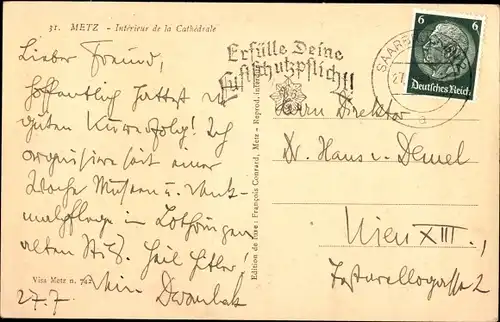 31. METZ - Intérieur de la Cathédrale
Lieber Freund,
hoffentlich hattest du
guten Kurerfolg! Ich
organisiere seit einer
Woche Museen u. Denk-
malpflege in Lothringen
alten Stils. Heil Hitler!
Visa Metz n. 742
27.7.
Erfülle Deine
Luftschutzpflicht!
SAARBR
27.
a
6 6
Deutsches Reich
Edition de luxe: François Conrard, Metz - Reprod. interdite
Herrn Direktor
Dr. Hans v. Demel
Wien XIII,
2